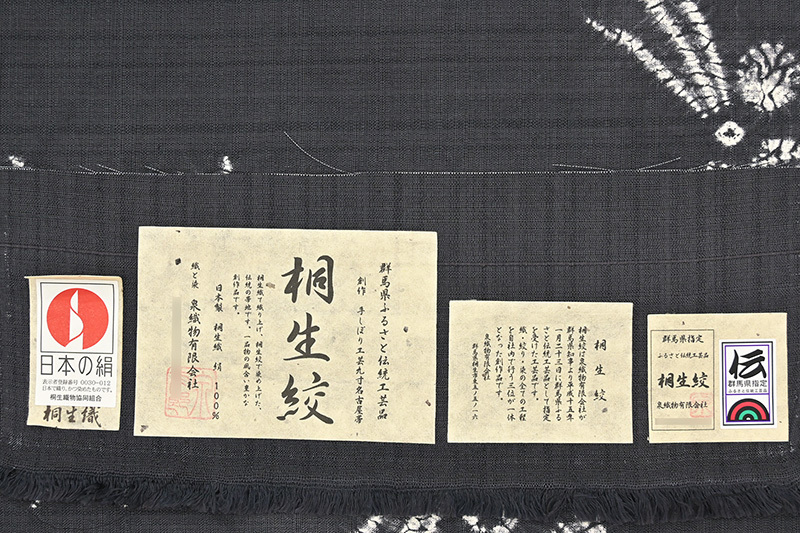 日本の絹
表示者登録番号 0030-012
日本で織り、かつ染めたものです。
桐生織物協同組合
桐生織
群馬県ふるさと伝統工芸品
創作 手しぼり工芸九寸名古屋帯
桐生絞
桐生織で織り上げ、桐生絞で染め上げた、
伝統の帯地です。一品物の風合い豊かな
創作品です。
日本製 桐生織 絹 100%
織と染 泉織物有限会社
桐生絞
桐生絞は泉織物有限会社が
群馬県知事より平成十五年
一月二十三日に群馬県ふる
さと伝統工芸品として指定
を受けた工芸品です。
織・絞り・染の全ての工程
を自社内で行う三位が一体
となった創作品です。
泉織物有限会社
群馬県桐生市東5-5-16
群馬県指定
ふるさと伝統工芸品
桐生絞
泉織物有限会社
伝
群馬県指定
ふるさと伝統工芸品